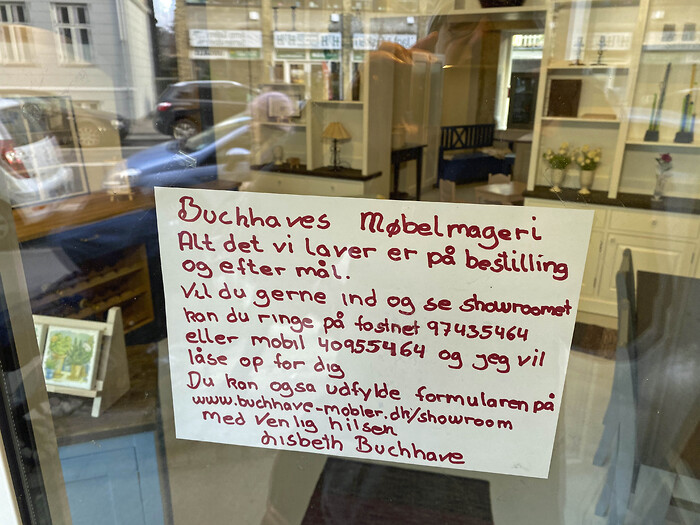 Buchhaves Møbelmageri
Alt det vi laver er på bestilling
og efter mål.
Vil du gerne ind og se showroomet
kan du ringe på fastnet 97435464
eller mobil 40955464 og jeg vil
låse op for dig
Du kan også udfylde formularen på
www.buchhave-mobler.dk/showroom
med venlig hilsen
Lisbeth Buchhave